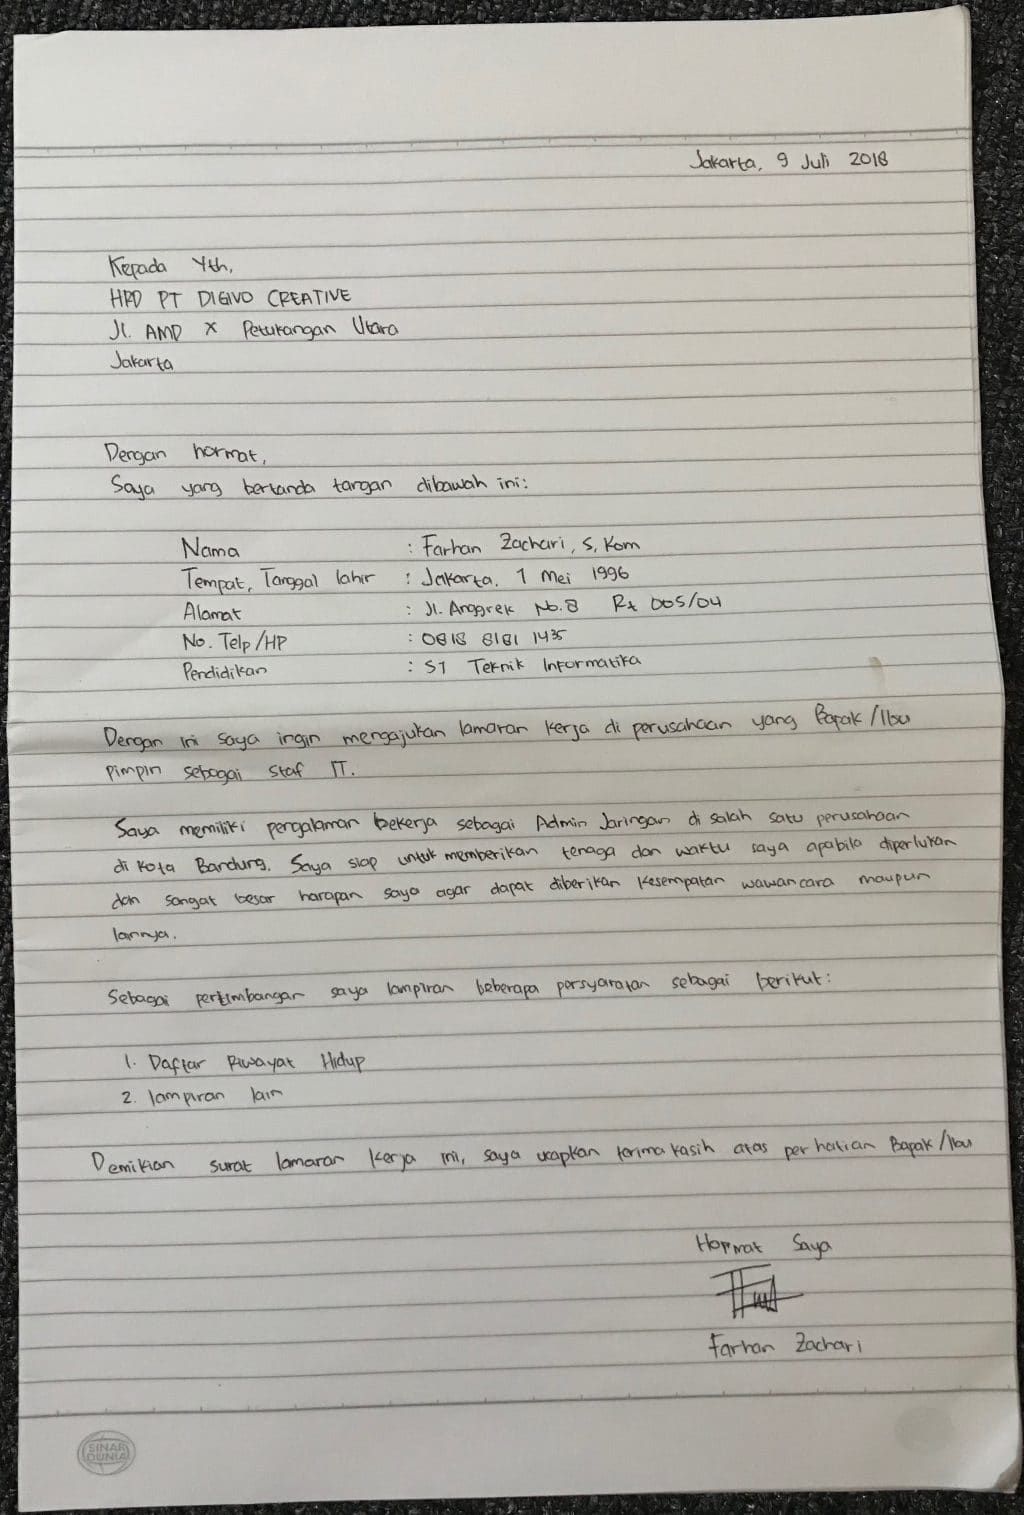 Jakarta, 9 Juli 2018
Kepada Yth,
HRD PT DIGIVO CREATIVE
Jl. AMD X Petukangan Utara
Jakarta
Dengan hormat,
Saya yang bertanda tangan dibawah ini:
Nama : Farhan Zachari, S, Kom
Tempat, Tanggal lahir : Jakarta, 1 Mei 1996
Alamat : Jl. Anggrek No.8 Rt 005/04
No. Telp/HP : 0818 8181 1435
Pendidikan : S1 Teknik Informatika
Dengan ini saya ingin mengajukan lamaran kerja di perusahaan yang Bapak/Ibu
pimpin sebagai staf IT.
Saya memiliki pengalaman bekerja sebagai Admin Jaringan di salah satu perusahaan
di kota Bandung. Saya siap untuk memberikan tenaga dan waktu saya apabila diperlukan
dan sangat besar harapan saya agar dapat diberikan kesempatan wawancara maupun
lainnya.
Sebagai pertimbangan saya lampiran beberapa persyaratan sebagai berikut:
1. Daftar Riwayat Hidup
2. lampiran lain
Demikian surat lamaran kerja ini, saya ucapkan terima kasih atas perhatian Bapak/Ibu
Hormat Saya
Farhan Zachari
SINAR
DUNIA